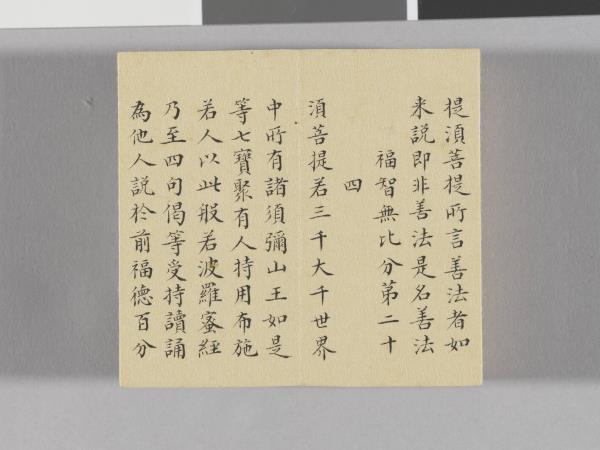 提湏菩提所言善法者如
来説即非善法是名善法
福智無比分第二十
四
湏菩提若三千大千世界
中所有諸須彌山王如是
等七寶聚有人持用布施
若人以此般若波羅蜜経
乃至四句偈等受持讀誦
為他人説於前福德百分